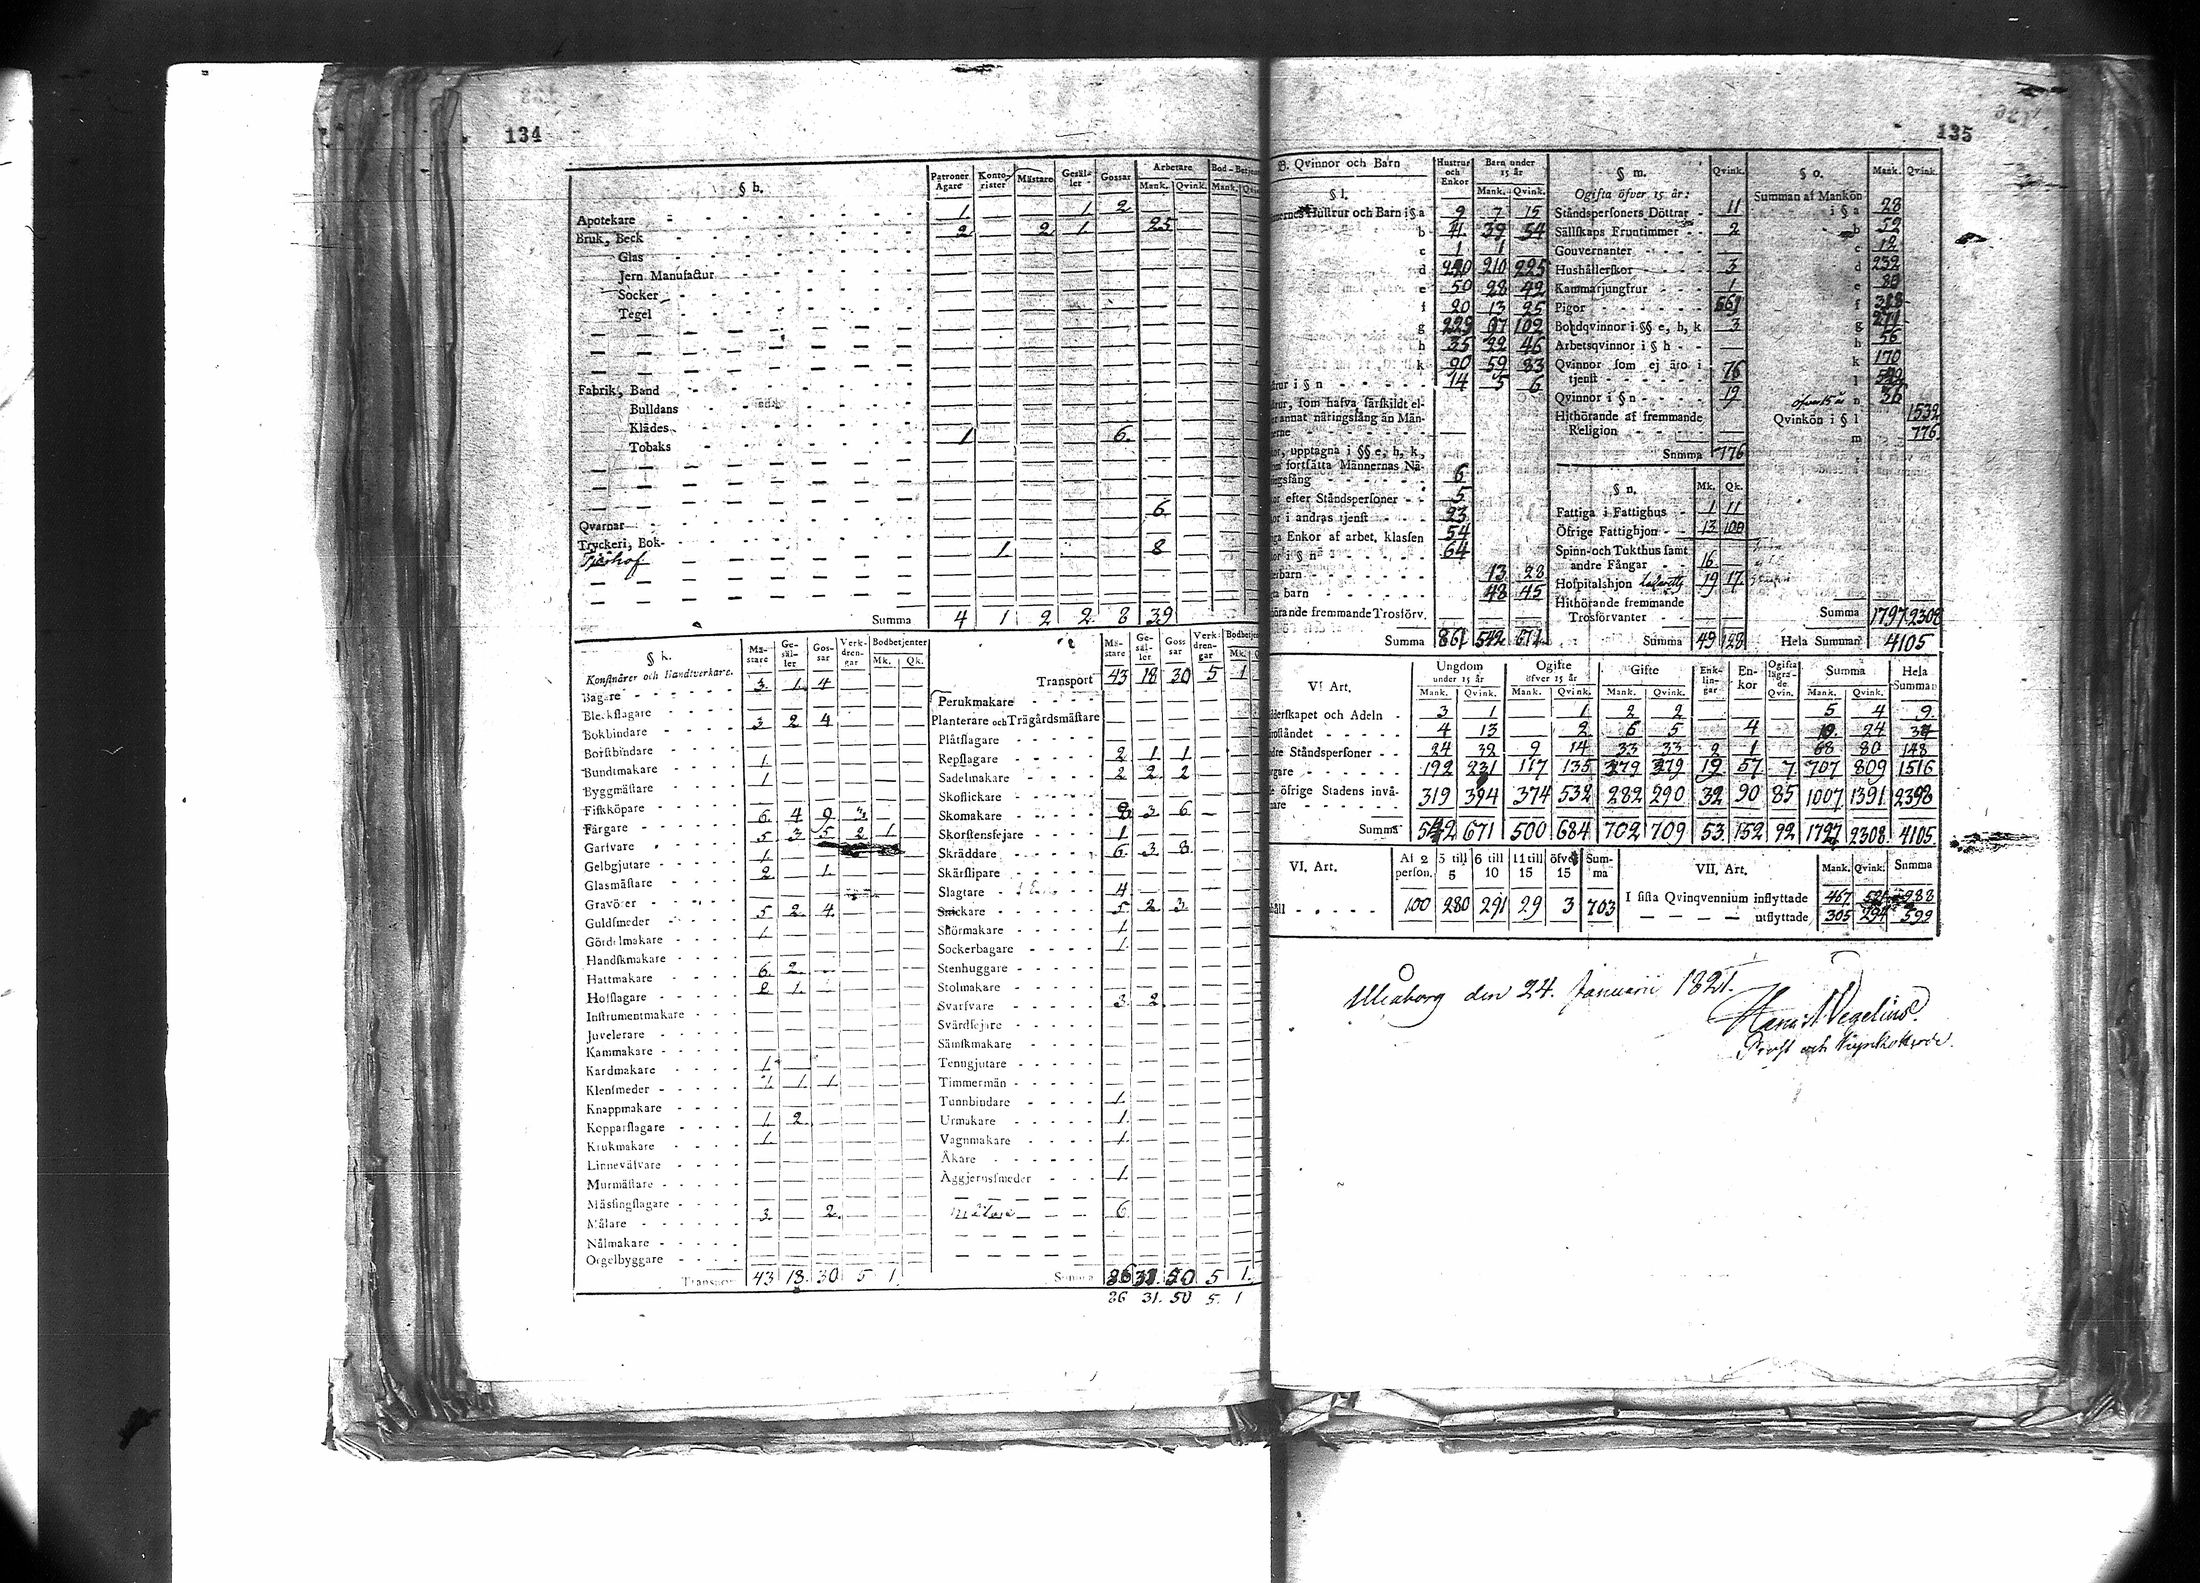 134
§ h.
Patroner Ägare Konto-rister Mästare Gesäl-ler Gossar Arbetare Mank. Qvink. Bod-Betjen Mank.
Apotekare 1 1 2
Bruk, Beck 2 2 1 25
Glas
Jern Manufactur
Socker
Tegel
Fabrik, Band
Bulldans
Klädes
Tobaks 1 6
Qvarnar 6
Tryckeri, Bok-
Tjärhof 1 8
Summa 4 1 2 2 8 39
§ k.
Konstnärer och Handtverkare.
Mä-stare Ge-säl-ler Gos-sar Verk-dren-gar Bodbetjenter Mk. Qk.
Bagare 3 1 4
Bleckslagare
Bokbindare 3 2 4
Borstbindare
Bundtmakare 1
Byggmästare 1
Fiskköpare
Färgare 6 4 9 3
Garfvare 5 3 5 2 1
Gelbgjutare 1
Glasmästare 2 1
Gravörer
Guldsmeder 5 2 4
Gördelmakare 1
Handskmakare
Hattmakare 6 2
Hofslagare 2 1
Instrumentmakare
Juvelerare
Kammakare
Kardmakare 1
Klensmeder 7 1 1
Knappmakare
Kopparslagare 1 2
Krukmakare 1
Linnevälvare
Murmästare
Mässingslagare
Målare 3 2
Nålmakare
Orgelbyggare
Transport 43 18 30 5 1
Mä-stare Ge-säl-ler Goss sar Verk-dren-gar Bodbetjen Mk.
Transport 43 18 30 5 1
Perukmakare
Planterare och Trägårdsmästare
Plåtslagare
Repslagare 2 1 1
Sadelmakare 2 2 2
Skoflickare
Skomakare 3 6
Skorstensfejare 1
Skräddare 6 3 8
Skärslipare
Slagtare 4
Snickare 5 2 3
Snörmakare 1
Sockerbagare 1
Stenhuggare
Stolmakare
Svarfvare 3 2
Svärdfejare
Sämskmakare
Tenngjutare
Timmermän
Tunnbindare 1
Urmakare 1
Vagnmakare 1
Åkare
Äggjernssmeder 1
6
Summa 86 31 50 5 1
86 31. 50 5. 1
135
B. Qvinnor och Barn Hustrur och Enkor Barn under 15 år Mank. Qvink.
§ l.
Hustrur och Barn i § a 9 7 15
b 41 39 54
c 1 1
d 220 210 225
e 50 28 42
f 20 13 25
g 229 97 102
h 35 22 46
k 90 59 83
i § n 14 5 6
som hafva särskildt el-
annat näringsfång än Män-
upptagna i §§ e, h, k,
fortsätta Männernas Nä- 6
efter Ståndspersoner 5
i andras tjenst 23
Enkor af arbet. klassen 54
i § n 64
barn 13 28
barn 48 45
fremmande Trosförv.
Summa 861 542 671
§ m. Qvink.
Ogifta öfver 15 år:
Ståndspersoners Döttrar 11
Sällskaps Fruntimmer 2
Gouvernanter
Hushållerskor 3
Kammarjungfrur 1
Pigor 661
Bohdqvinnor i §§ e, h, k 3
Arbetsqvinnor i § h
Qvinnor som ej äro i
tjenst 76
Qvinnor i § n 19
Hithörande af fremmande
Religion
Summa 776
§ n. Mk. Qk.
Fattiga i Fattighus 1 11
Öfrige Fattighjon 13 100
Spinn- och Tukthus samt
andre Fångar 16
Hospitalshjon 19 17
Hithörande fremmande
Trosförvanter
Summa 49 128
§ o. Mank. Qvink.
Summan af Mankön
i § a 28
b 52
c 12
d 232
e 80
f
g
h 56
k 170
l
n 36
Qvinkön i § l 1532
m 776
Summa 1797 2308
Hela Summan 4105
V. Art. Ungdom under 15 år Mank. Qvink. Ogifte öfver 15 år Mank. Qvink. Gifte Mank. Qvink. Enk-lin-gar En-kor Ogifta lägra-de Qvin. Summa Mank. Qvink. Hela Summan
och Adeln 3 1 1 2 2 5 4 9
4 13 2 6 5 4 24
Ståndspersoner 24 32 9 14 33 33 2 1 68 80 148
192 231 117 135 379 379 19 57 7 707 809 1516
öfrige Stadens invå-
319 394 374 532 282 290 32 90 85 1007 1391 2398
Summa 542 671 500 684 702 709 53 152 92 1797 2308 4105
VI. Art. Af 2 person. 3 till 5 6 till 10 11 till 15 öfver 15 Sum-ma
100 280 291 29 3 703
VII. Art. Mank. Qvink. Summa
I sista Qvinqvennium inflyttade 467 521 988
utflyttade 305 294 599
Uleåborg den 24. Januarii 1821.
Prost och Kyrkoherde.